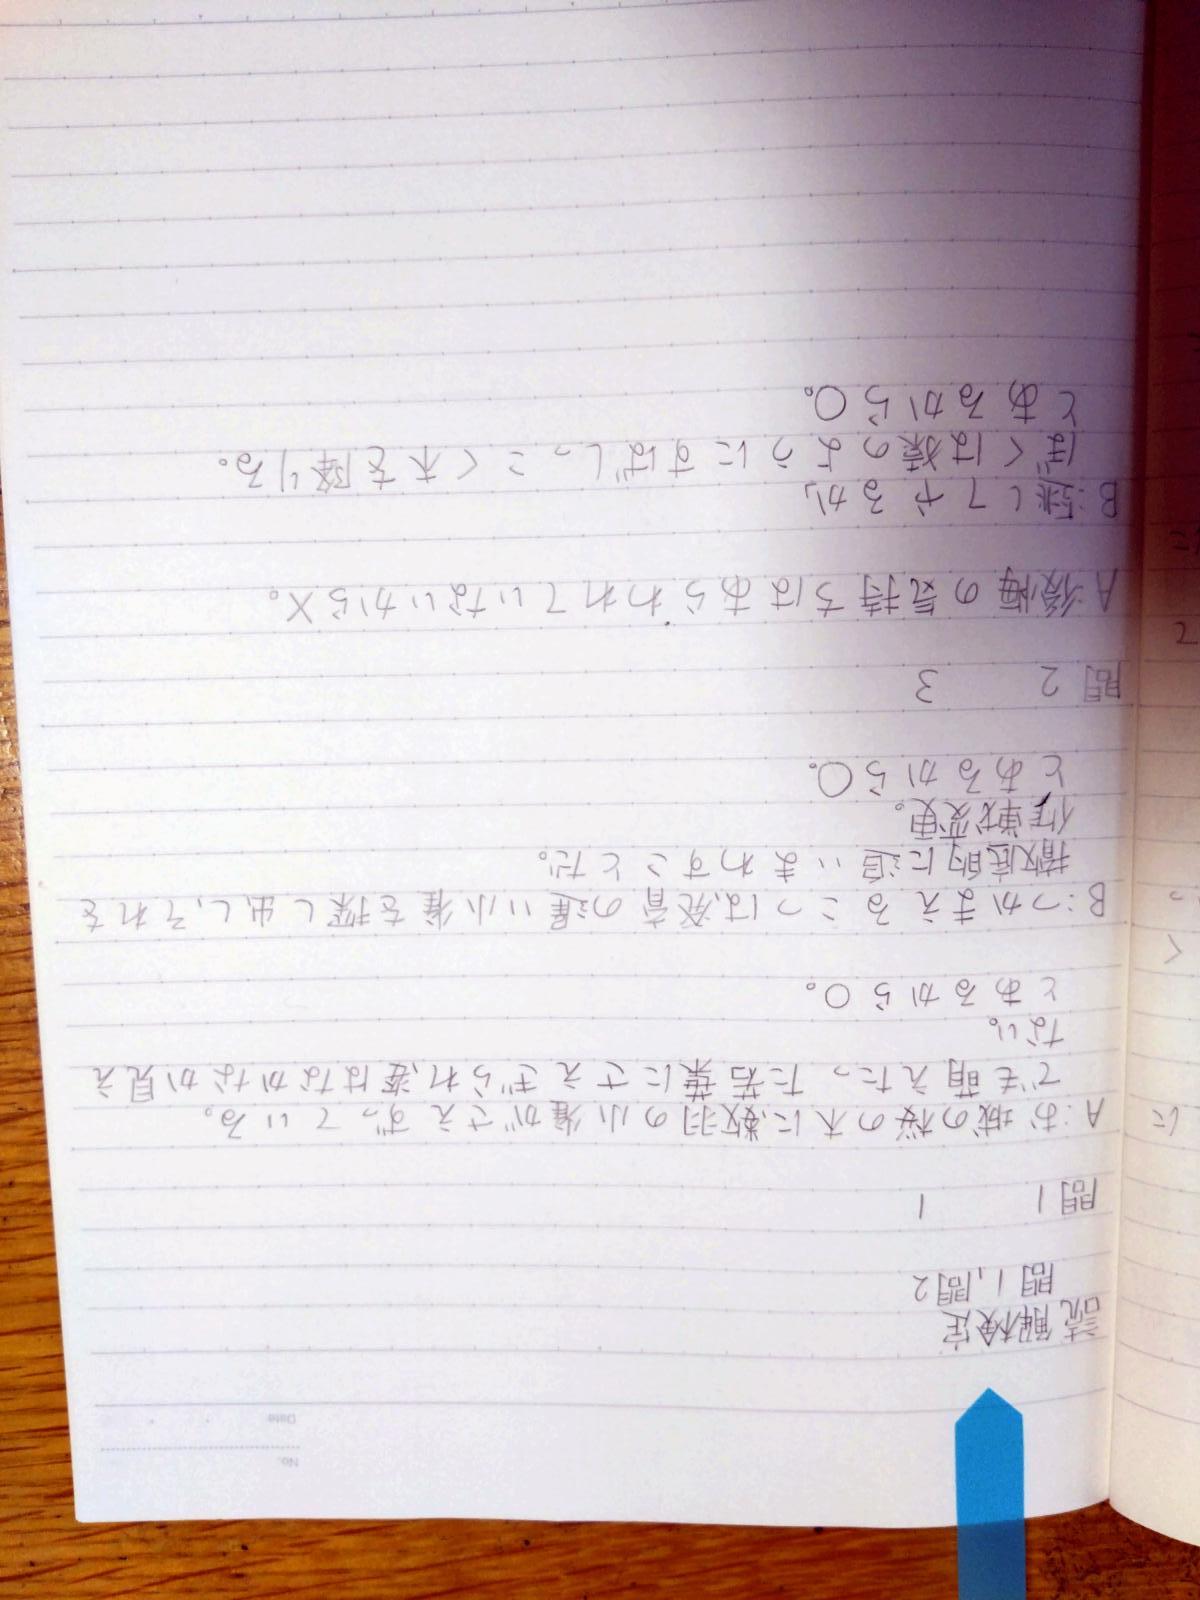 No.
Date
読解検定
問1,問2
問1 1
A:お城の桜の木に、数羽の小雀がさえずっている。
でも萌えたった若葉にさえぎられ、姿はなかなか見え
ない。
とあるから○。
B:つかまえるこつは、発育の遅い小雀を探し出し、それを
徹底的に追いまわすことだ。
作戦変更。
とあるから○。
問2 3
A:後悔の気持ちはあらわれていないから×。
B:逃してやるか、
ぼくは猿のようにすばしっこく木を降りる。
とあるから○。